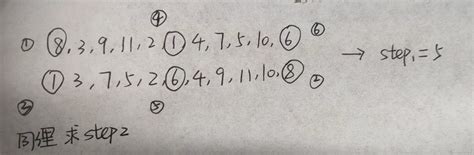 ④
① ⑧,3,9,11,2,① 4,7,5,10,⑥ ⑥ → step₁=5
① 3,7,5,2,⑥,4,9,11,10,⑧ ②
③ ⑤
同理 求step2